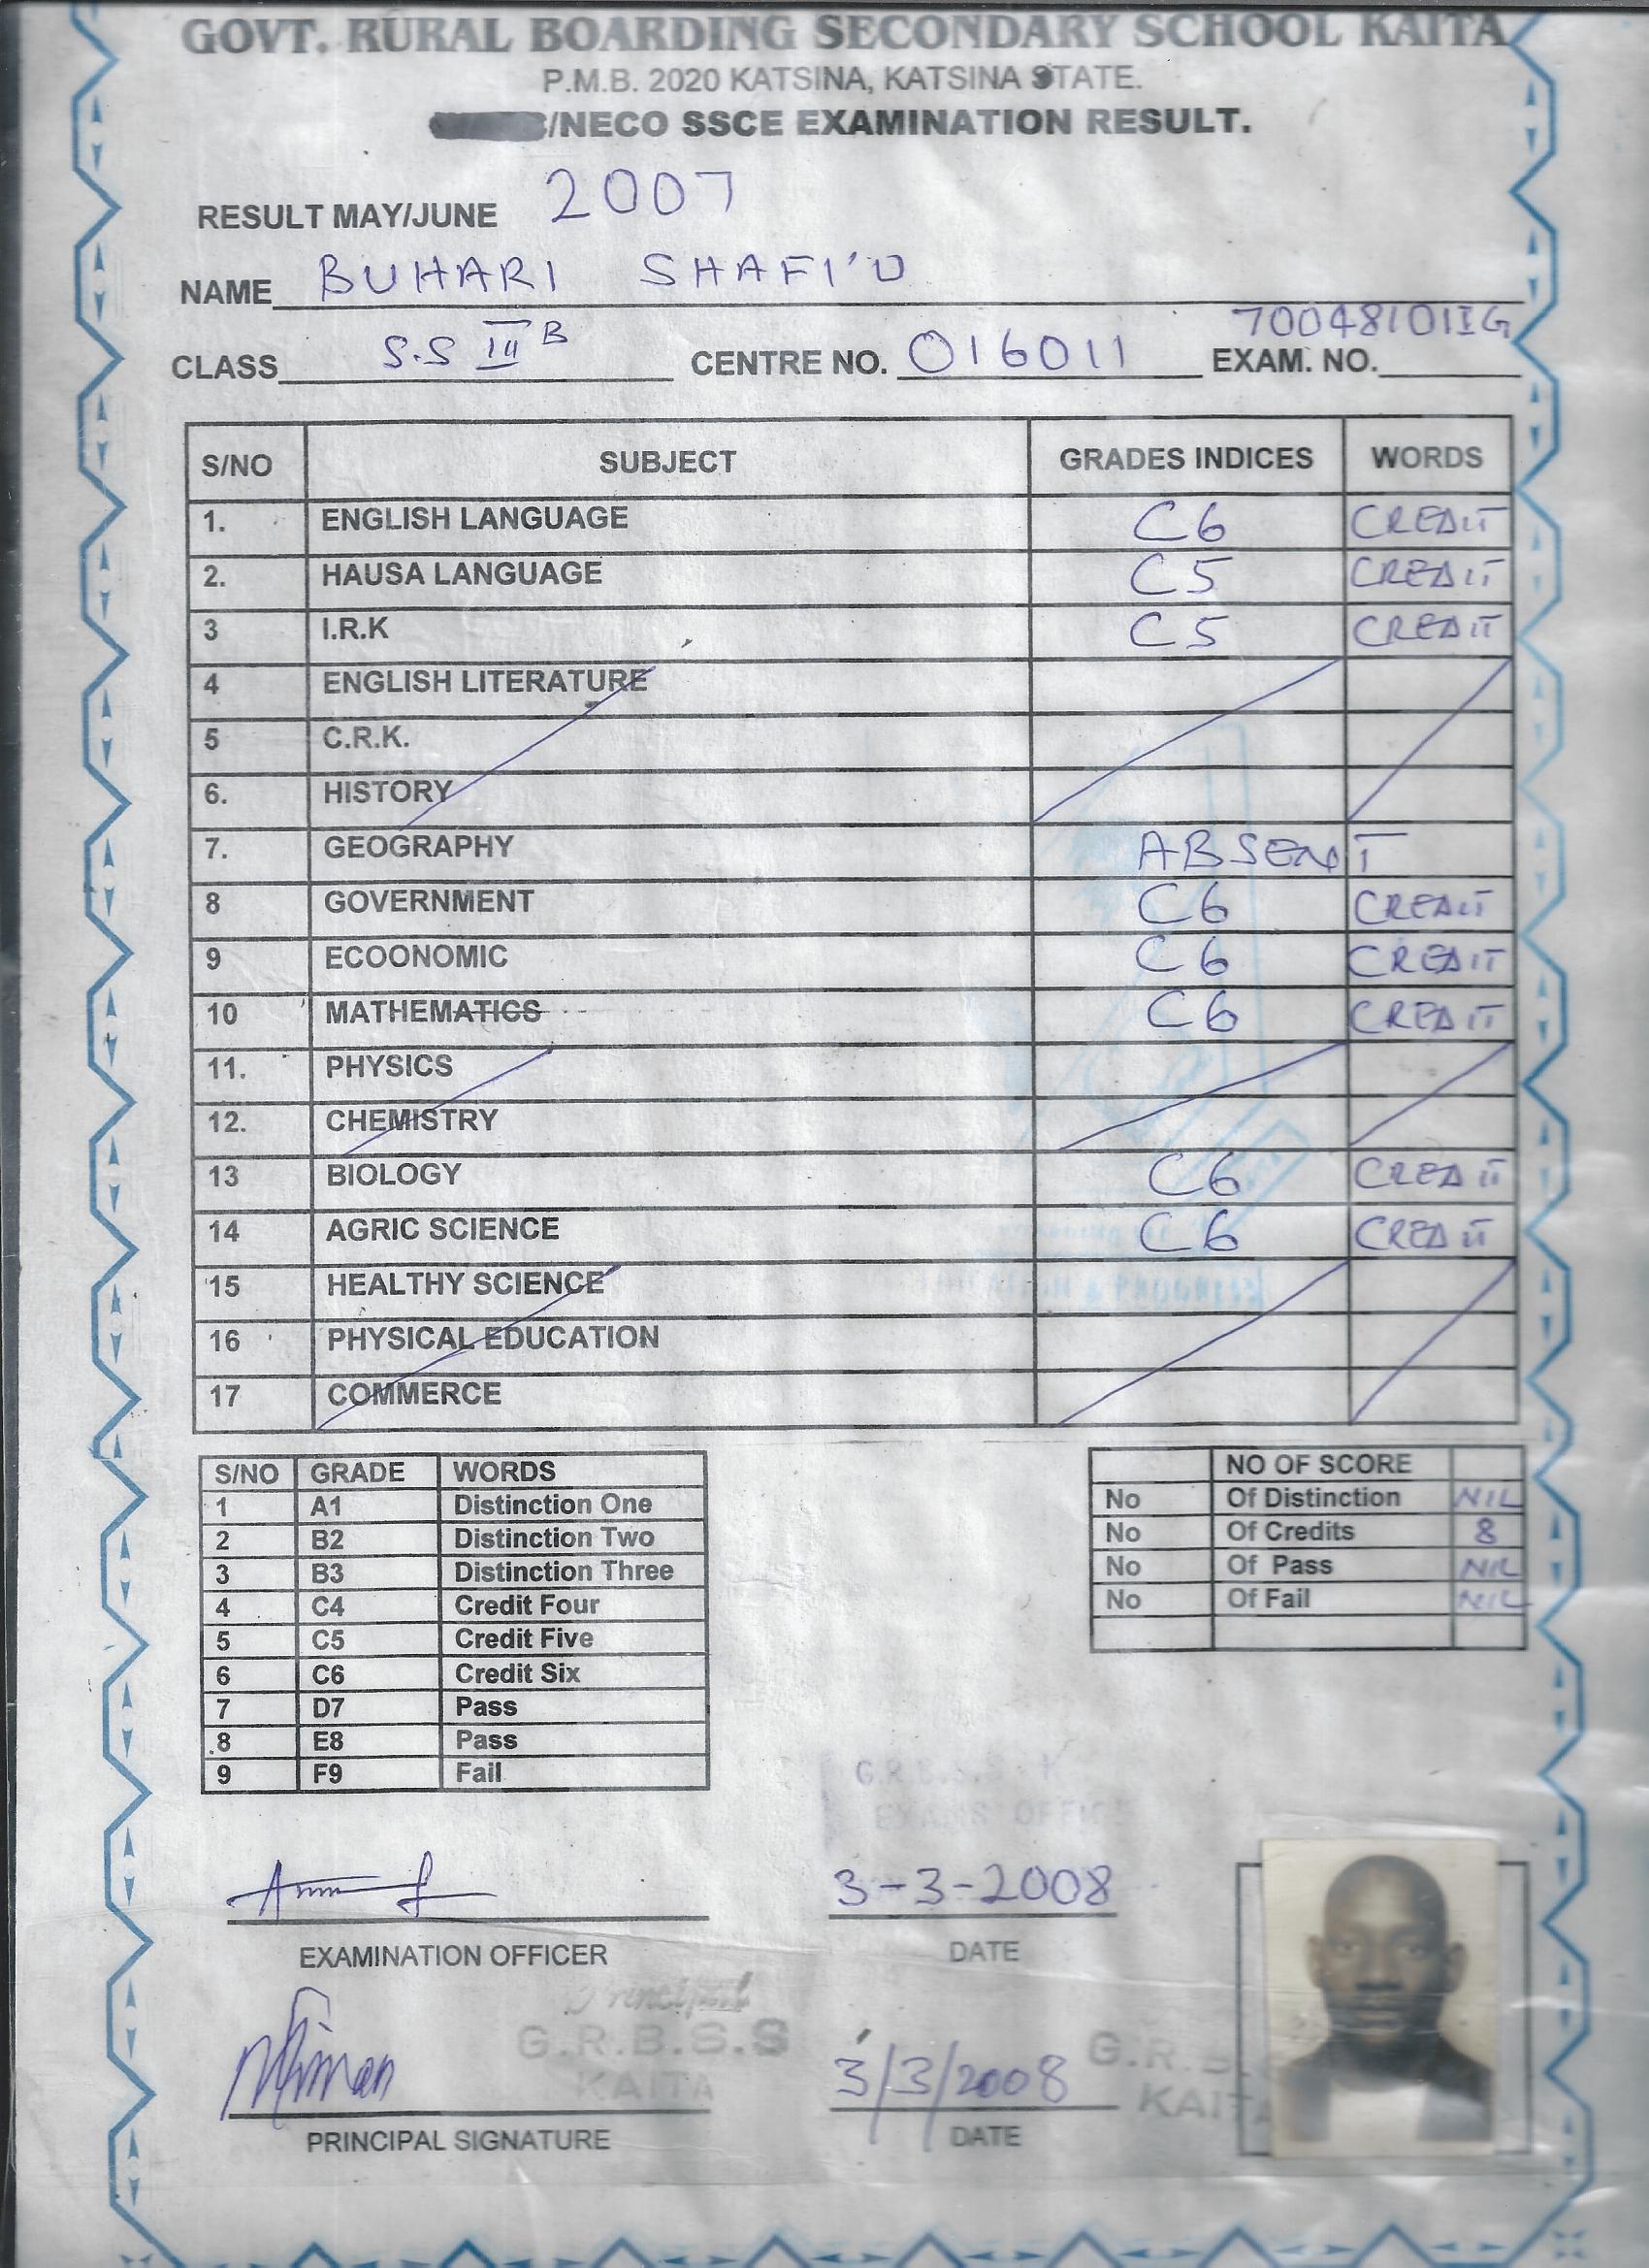 GOVT. RURAL BOARDING SECONDARY SCHOOL KAITA
P.M.B. 2020 KATSINA, KATSINA STATE.
/NECO SSCE EXAMINATION RESULT.
RESULT MAY/JUNE 2007
NAME BUHARI SHAFI'U
CLASS S.S III B CENTRE NO. 016011 EXAM. NO. 70048101IG
S/NO SUBJECT GRADES INDICES WORDS
1. ENGLISH LANGUAGE C6 CREDIT
2. HAUSA LANGUAGE C5 CREDIT
3 I.R.K C5 CREDIT
4 ENGLISH LITERATURE
5 C.R.K.
6. HISTORY
7. GEOGRAPHY ABSENT
8 GOVERNMENT C6 CREDIT
9 ECOONOMIC C6 CREDIT
10 MATHEMATICS C6 CREDIT
11. PHYSICS
12. CHEMISTRY
13 BIOLOGY C6 CREDIT
14 AGRIC SCIENCE C6 CREDIT
15 HEALTHY SCIENCE
16 PHYSICAL EDUCATION
17 COMMERCE
S/NO GRADE WORDS
1 A1 Distinction One
2 B2 Distinction Two
3 B3 Distinction Three
4 C4 Credit Four
5 C5 Credit Five
6 C6 Credit Six
7 D7 Pass
8 E8 Pass
9 F9 Fail
NO OF SCORE
No Of Distinction NIL
No Of Credits 8
No Of Pass NIL
No Of Fail NIL
3-3-2008
EXAMINATION OFFICER DATE
Principal
G.R.B.S.S
KAITA
3/3/2008
G.R.B.
KAITA
PRINCIPAL SIGNATURE DATE